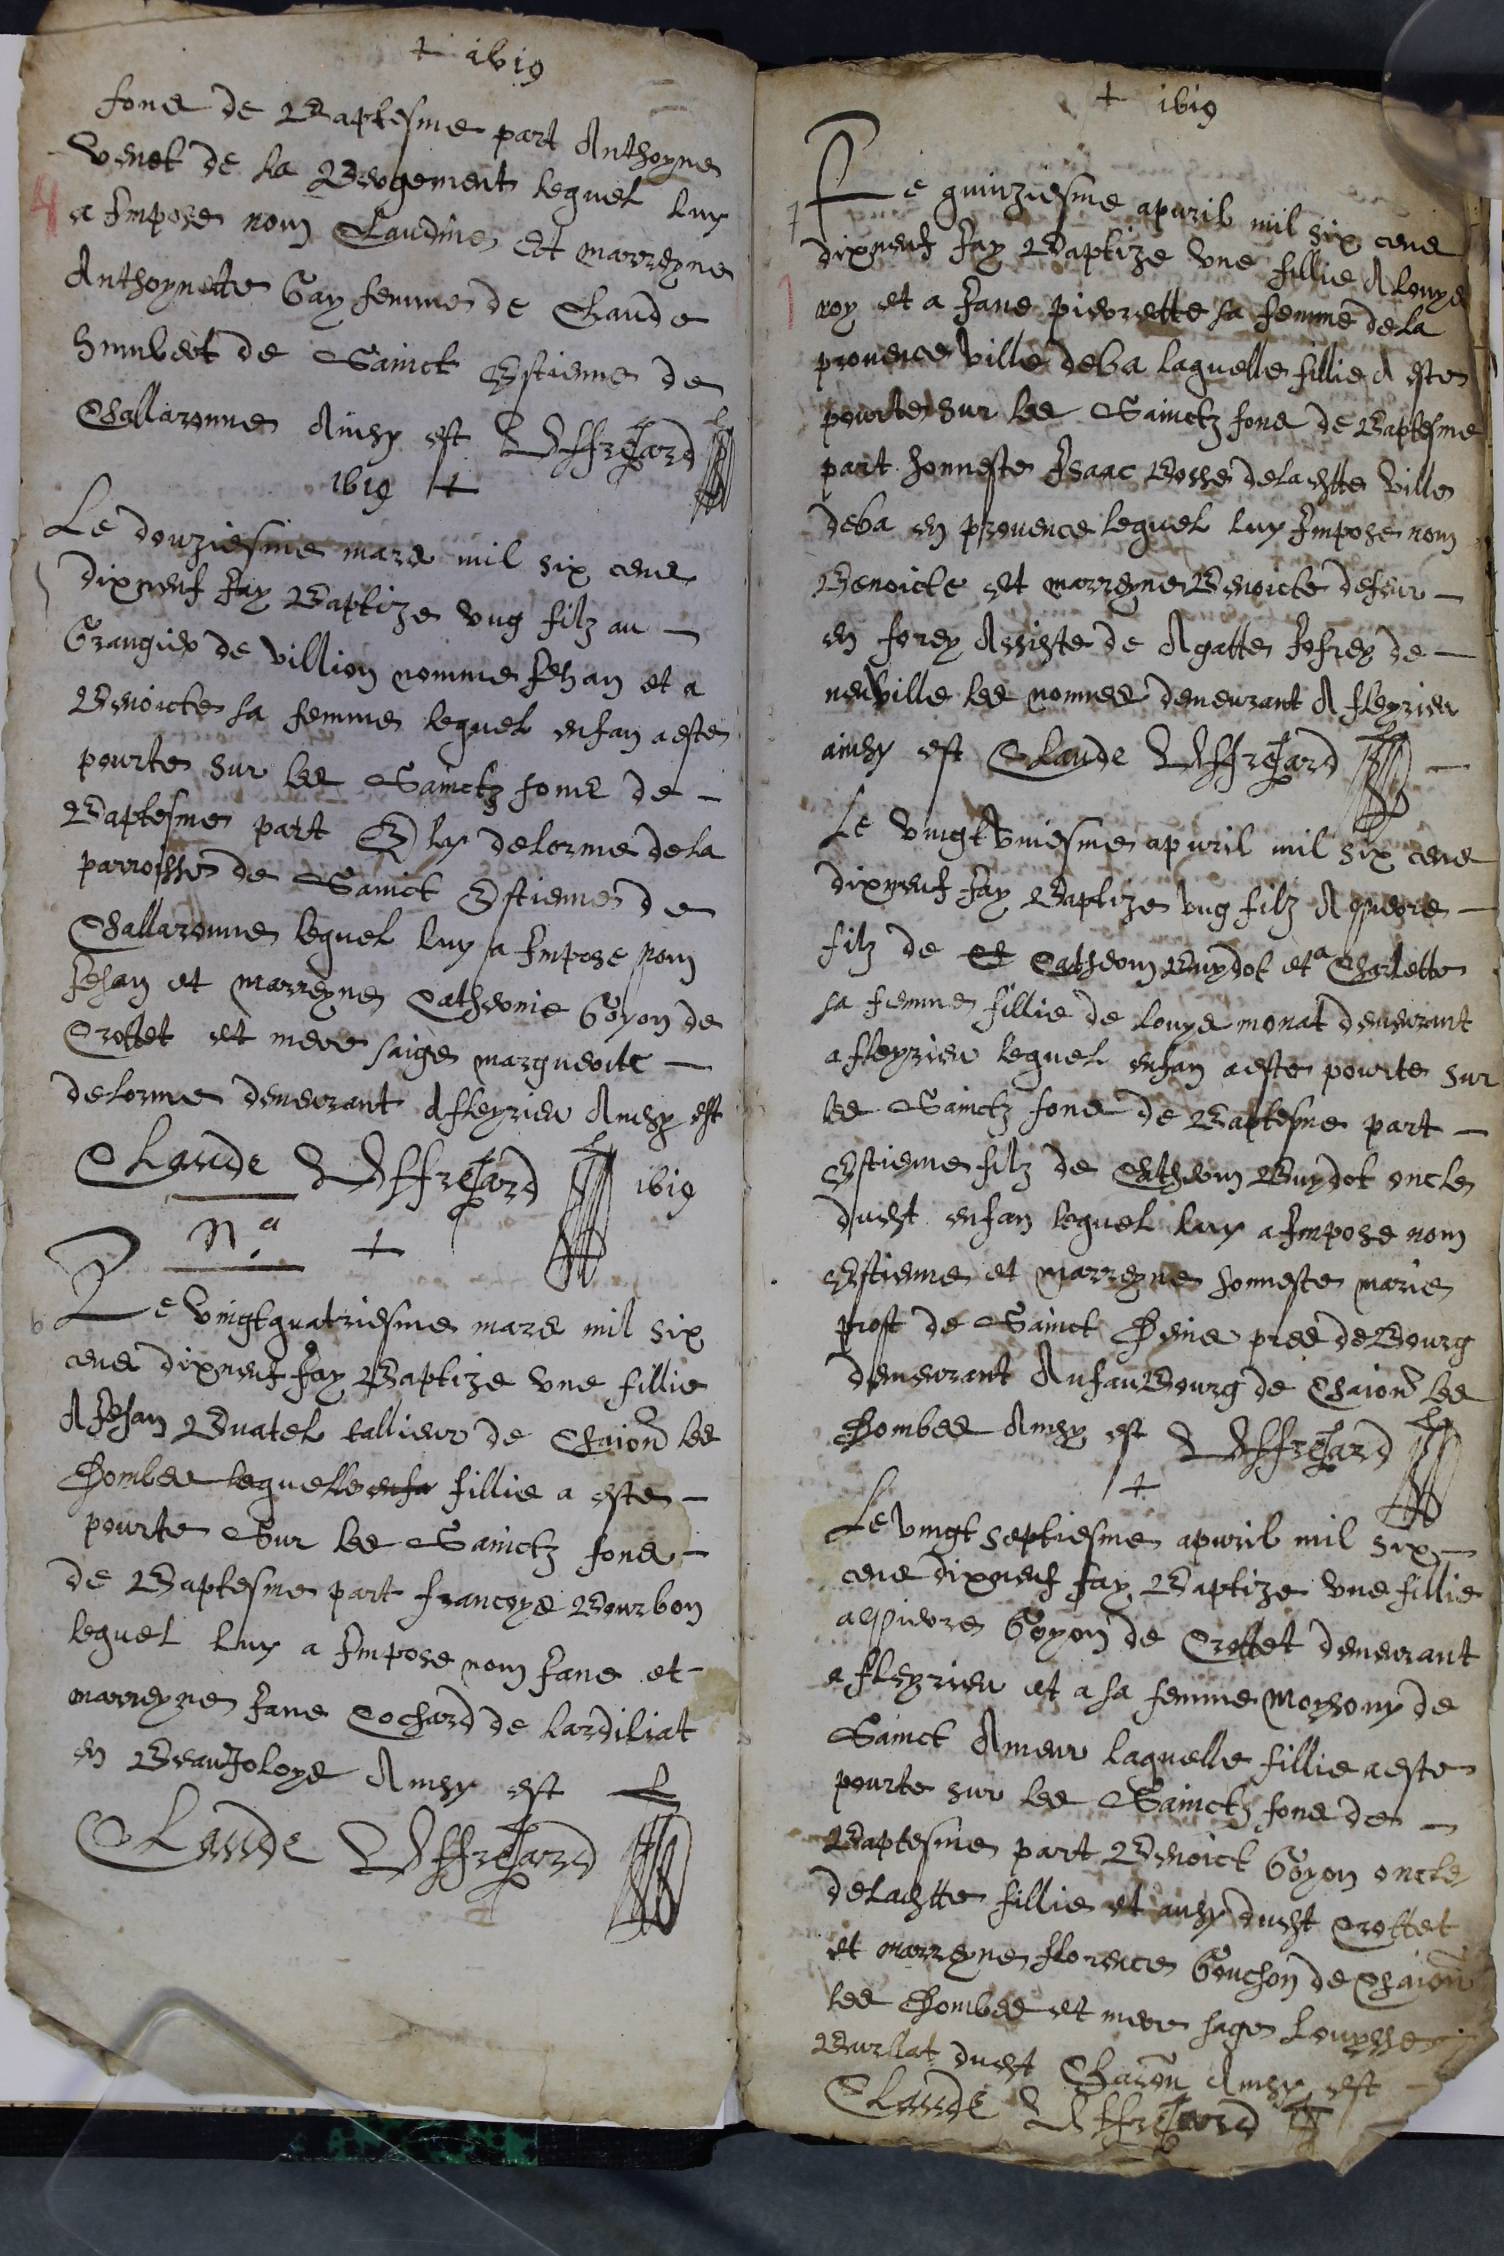 + 1619
fons de Baptesme part Anthoyne
venet de la Bergement lequel luy
a Impose nom Claudine et marreyne
Anthoynette Gay femme de Claude
humbert de Sainct Estienne de
Challaronne Ainsy est Uffreard
1619 +
Le douziesme mars mil six cens
dixneuf Jay Baptize ung filz au
Grangier de villion nomme Jehan et a
Benoicte sa femme lequel enfan a este
pourte sur les Sainctz fons de
Baptesme part Ely delorme de la
parroisse de Sainct Estienne de
Challaronne lequel luy a Impose nom
Jehan et marreyne Catherinne Goyon de
Crottet et mere saige marguerite
delorme demeurant A fleyrieu Ainsy est
Claude Uffreard 1619
Na +
Le vingtquatriesme mars mil six
cens dixneuf Jay Baptize une fillie
A Jehan Buatel tallieur de Chaion les
Dombes fillie a este
pourte Sur les Sainctz fons
de Baptesme part francoys Bourbon
lequel luy a Impose nom Jane et
marreyne Jane Cochard de lardiliat
en Beaujoloys Ainsy est
Claude Uffreard
+ 1619
Le quinziesme apvril mil six cens
dixneuf Jay Baptize une fillie A louys
roy et a Jane pierrette sa femme de la
provence ville deba laquelle fillie A este
pourte sur les Sainctz fons de Baptesme
part honneste Isaac Bosse de lachtte ville
deba en provence lequel luy Impose nom
Benoicte et marreyne Benoicte defeur
en forey Assiste de Agatte Jofrey de
neufville les nommes demeurant A fleyrieu
ainsy est Claude Uffreard
Le vingt uniesme apvril mil six cens
dixneuf Jay Baptize ung filz A pierre
filz de Catherin Buydot et a Charlette
sa femme fillie de louys monat demeurant
a fleyrieu lequel enfan a este pourte sur
les Sainctz fons de Baptesme part
Estienne filz de Catherin Buydot oncle
duest enfan lequel luy a Impose nom
Estienne et marreyne honneste marie
prost de Sainct Denis pres de Bourg
demeurant Au fauBourg de Chaion les
Dombes Ainsy est Uffreard
+
Le vingt septiesme apvril mil six
cens dixneuf Jay Baptize une fillie
a pierre Goyon de Crottet demeurant
a fleyrieu et a sa femme de
Sainct Ameur laquelle fillie a este
pourte sur les Sainctz fons de
Baptesme part Benoict Goyon oncle
de lachtte fillie et aussy duest Crottet
et marreyne florence Gouchon de Chaion
les Dombes et mere sage Louysse
Burllat duest Chaion Ainsy est
Claude Uffreard